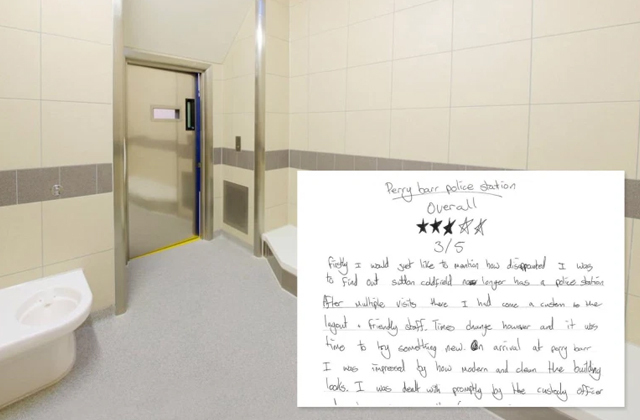 Perry barr police station
Overall
★★★☆☆
3/5
firstly I would just like to mention how disappointed I was
to find out sutton coldfield no longer has a police station
After multiple visits there I had come a custom to the
layout + friendly staff. Times change however and it was
time to try something new. On arrival at perry barr
I was impressed by how modern and clean the building
looks. I was dealt with promptly by the custody officer